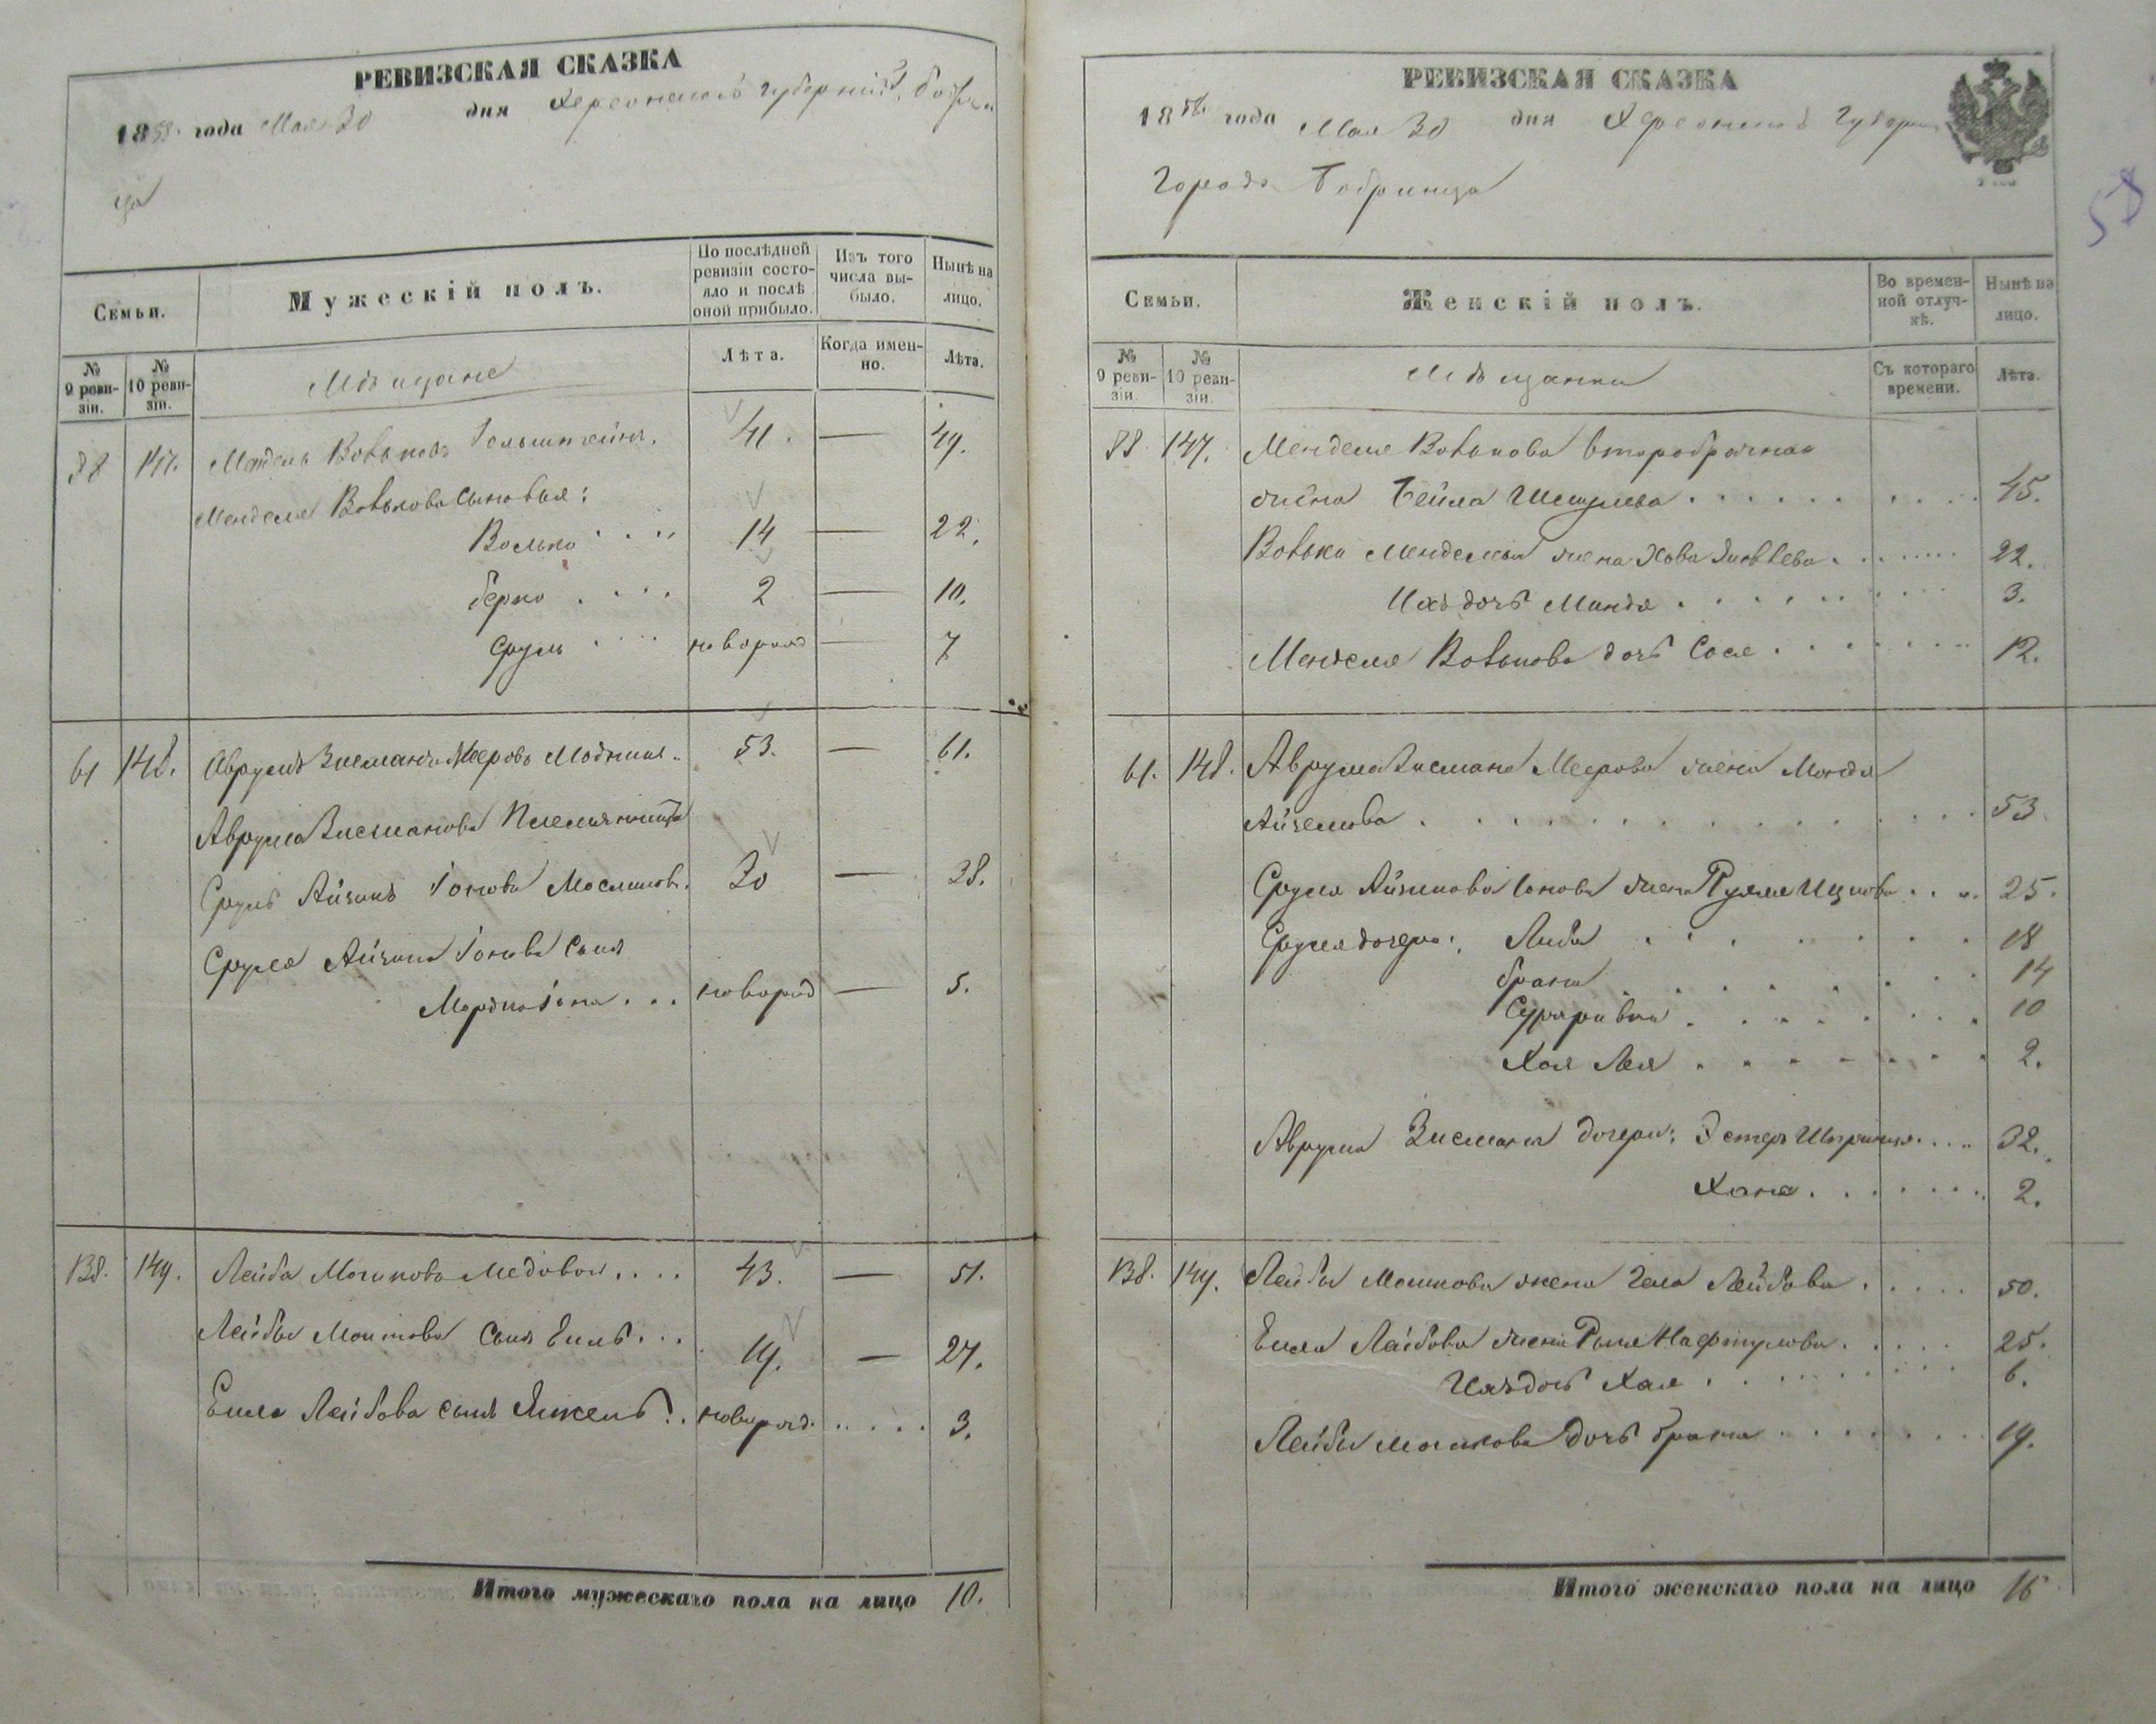 РЕВИЗСКАЯ СКАЗКА
1858 года Мая 30 дня Херсонской губернии г. Бобрин
ца
Семьи.
Мужескій полъ.
По послѣдней ревизіи состояло и послѣ оной прибыло.
Изъ того числа выбыло.
Нынѣ на лицо.
№ 9 ревизіи.
№ 10 ревизіи.
Мѣщане
Лѣта.
Когда именно.
Лѣта.
88 147. Мендель Вовьковъ Гольштейнъ. 41. — 49.
Менделя Вовькова сыновья:
Волько 14 — 22.
Берко 2 — 10.
Сруль новорожд — 7
61 148. Аврумъ Зисманъ Мееровъ 53. — 61.
Аврума Зисманова племянникъ
Сруль Айзикъ Іоновъ 30 — 38.
Сруля Айзика Іонова сынъ
Мордко Іона новорожд — 5.
138. 149. Лейба Мошковъ Медовой 43. — 51.
Лейбы Мошкова сынъ Еиль 19. — 27.
Еиля Лейбова сынъ Янкель новорожд. 3.
Итого мужескаго пола на лицо 10.
РЕВИЗСКАЯ СКАЗКА
1858 года Мая 30 дня Херсонской Губерніи
Города Бобринца
58
Семьи.
Женскій полъ.
Во временной отлучкѣ.
Нынѣ на лицо.
№ 9 ревизіи.
№ 10 ревизіи.
Мѣщанки
Съ котораго времени.
Лѣта.
88 147. Менделя Вовькова второбрачная
жена Бейла 45.
Вовьки Менделева жена Хова 22.
Ихъ дочь Миндя 3.
Менделя Вовькова дочь Сося 12.
61. 148. Аврума Зисмана Меерова жена
Айзикова 53.
Сруля Айзикова Іонова жена Рухля Ицкова 25.
Сруля дочери: Либа 18
Брана 14
Сура Ривка 10
Хая Лея 2.
Аврума Зисмана дочери: Эстеръ Шпринца 32.
Хана 2.
138. 149. Лейбы Мошкова жена Лейбова 50.
Еиля Лейбова жена Рыля Нафтулова 25.
Ихъ дочь Хая 6.
Лейбы Мошкова дочь Брана 19.
Итого женскаго пола на лицо 16